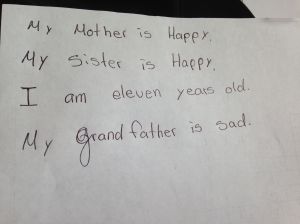 My Mother is Happy.
My sister is Happy.
I am eleven years old.
My grand father is sad.